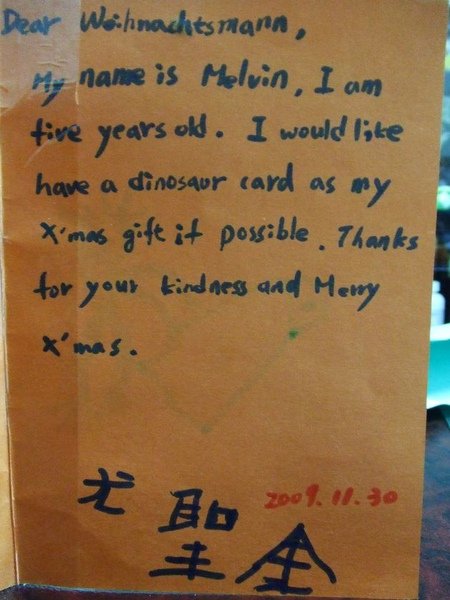 Dear Weihnachtsmann,
My name is Melvin, I am
five years old. I would like
have a dinosaur card as my
X'mas gift if possible. Thanks
for your kindness and Merry
X'mas.
2009.11.30
尤 聖 全